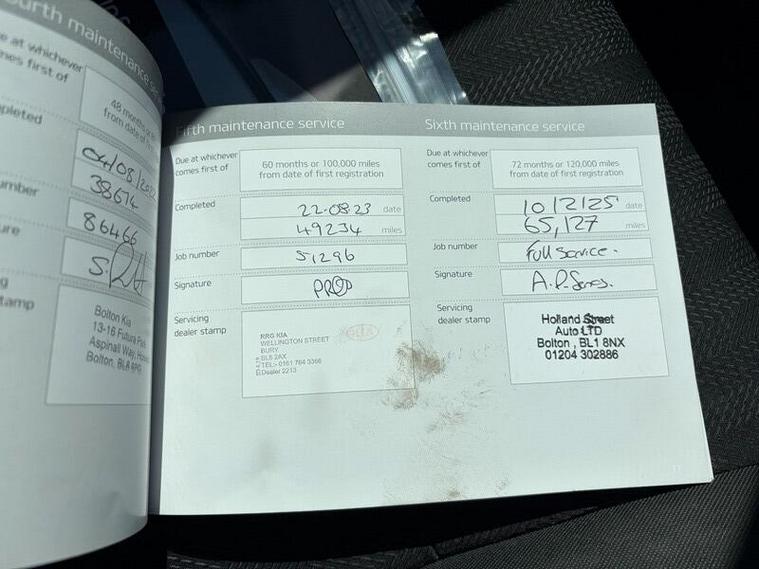 Fourth maintenance
at whichever
comes first of
48 months or
from date of
Completed
04/08/2022
38674
number
86466
Bolton Kia
13-16 Futura Park
Aspinall Way,
Bolton,
Fifth maintenance service
Due at whichever
comes first of
60 months or 100,000 miles
from date of first registration
Completed
22.08.23 date
49234 miles
Job number
51296
Signature
Servicing
dealer stamp
RRG KIA
WELLINGTON STREET
BURY
BL8 2AX
TEL:- 0161 764 3366
Dealer 2213
Sixth maintenance service
Due at whichever
comes first of
72 months or 120,000 miles
from date of first registration
Completed
10/2/25 date
65,127 miles
Job number
Full Service.
Signature
Servicing
dealer stamp
Holland Street
Auto LTD
Bolton , BL1 8NX
01204 302886